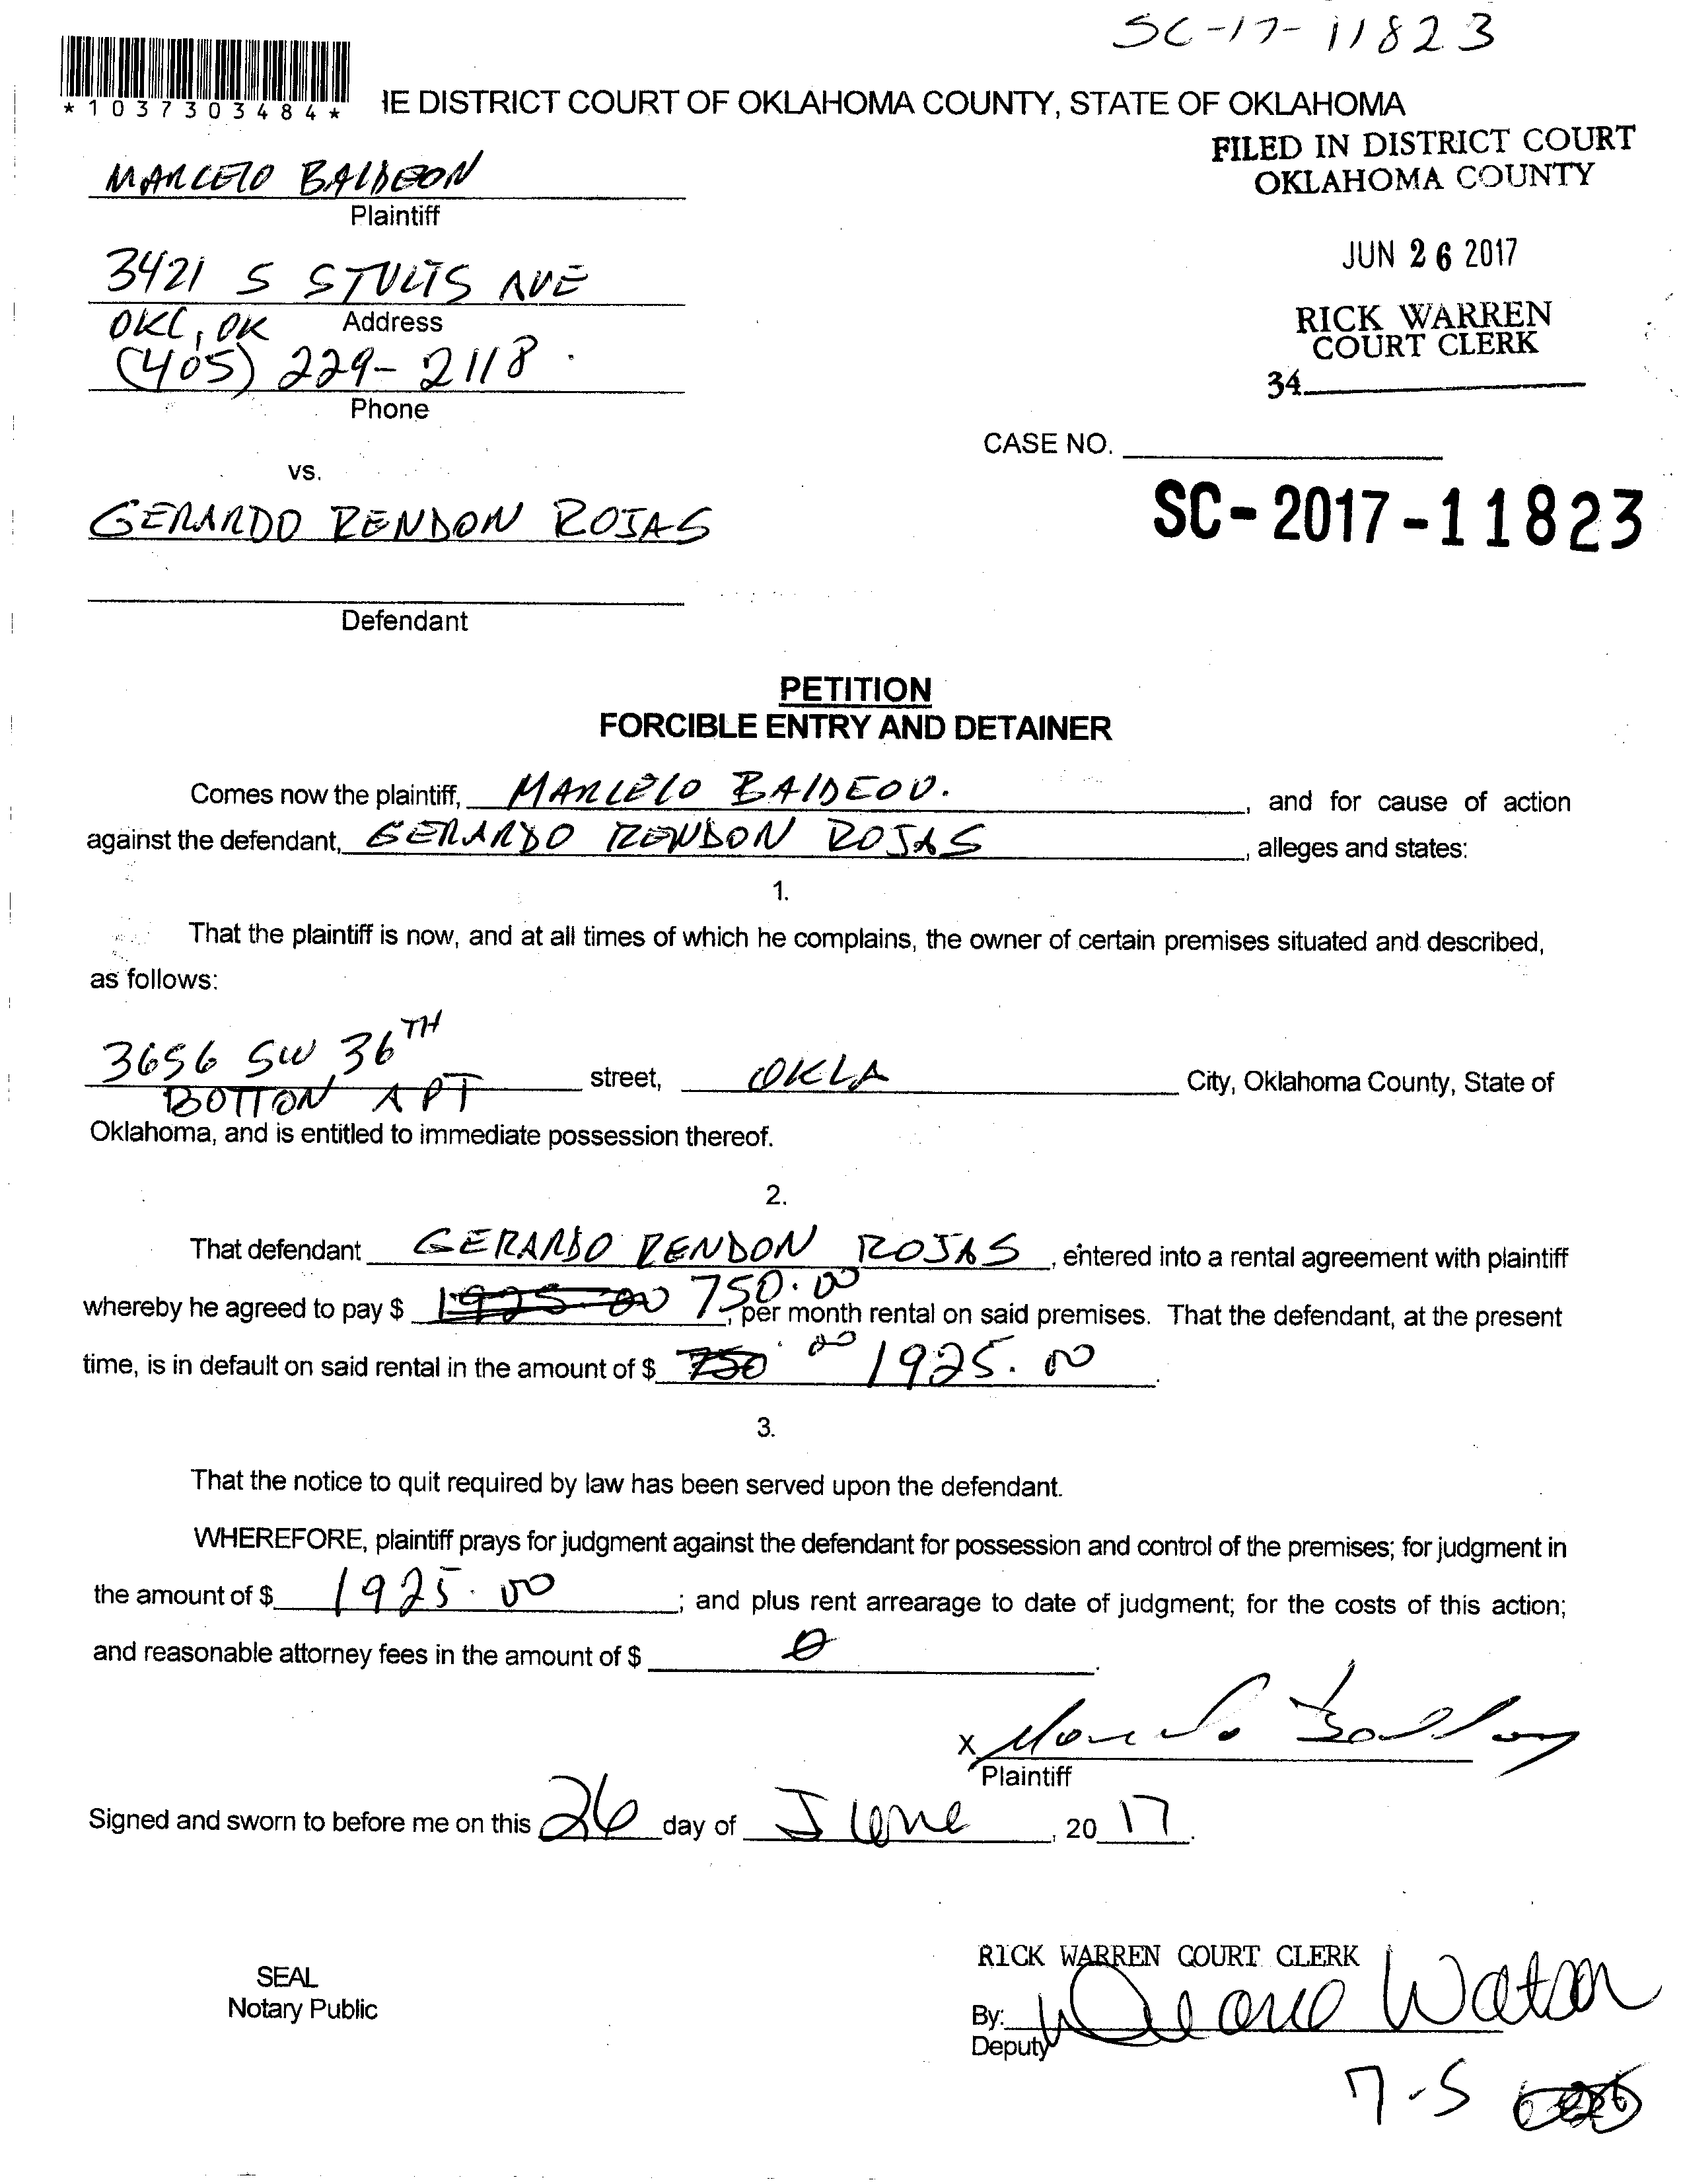 SC-17-11823
*1037303484*
IE DISTRICT COURT OF OKLAHOMA COUNTY, STATE OF OKLAHOMA
FILED IN DISTRICT COURT
OKLAHOMA COUNTY
MARCELO BALDEON
Plaintiff
JUN 26 2017
3421 S STULTS AVE
RICK WARREN
OKC, OK Address
COURT CLERK
(405) 229-2118
34
Phone
CASE NO.
vs.
SC-2017-11823
GERARDO RENDON ROJAS
Defendant
PETITION
FORCIBLE ENTRY AND DETAINER
Comes now the plaintiff, MARCELO BALDEON. , and for cause of action
against the defendant, GERARDO RENDON ROJAS , alleges and states:
1.
That the plaintiff is now, and at all times of which he complains, the owner of certain premises situated and described,
as follows:
3656 SW 36TH
street, OKLA City, Oklahoma County, State of
BOTTON APT
Oklahoma, and is entitled to immediate possession thereof.
2.
That defendant GERARDO RENDON ROJAS , entered into a rental agreement with plaintiff
whereby he agreed to pay $ 1925.00 750.00 , per month rental on said premises. That the defendant, at the present
time, is in default on said rental in the amount of $ 750.00 1925.00 .
3.
That the notice to quit required by law has been served upon the defendant.
WHEREFORE, plaintiff prays for judgment against the defendant for possession and control of the premises; for judgment in
the amount of $ 1925.00 ; and plus rent arrearage to date of judgment; for the costs of this action;
and reasonable attorney fees in the amount of $ 0 .
X
Plaintiff
Signed and sworn to before me on this 26 day of June , 20 17 .
RICK WARREN COURT CLERK
SEAL
Notary Public
By: Watson
Deputy
7-5